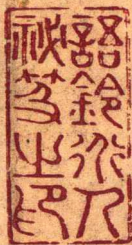 語鈴人
祕笈之印